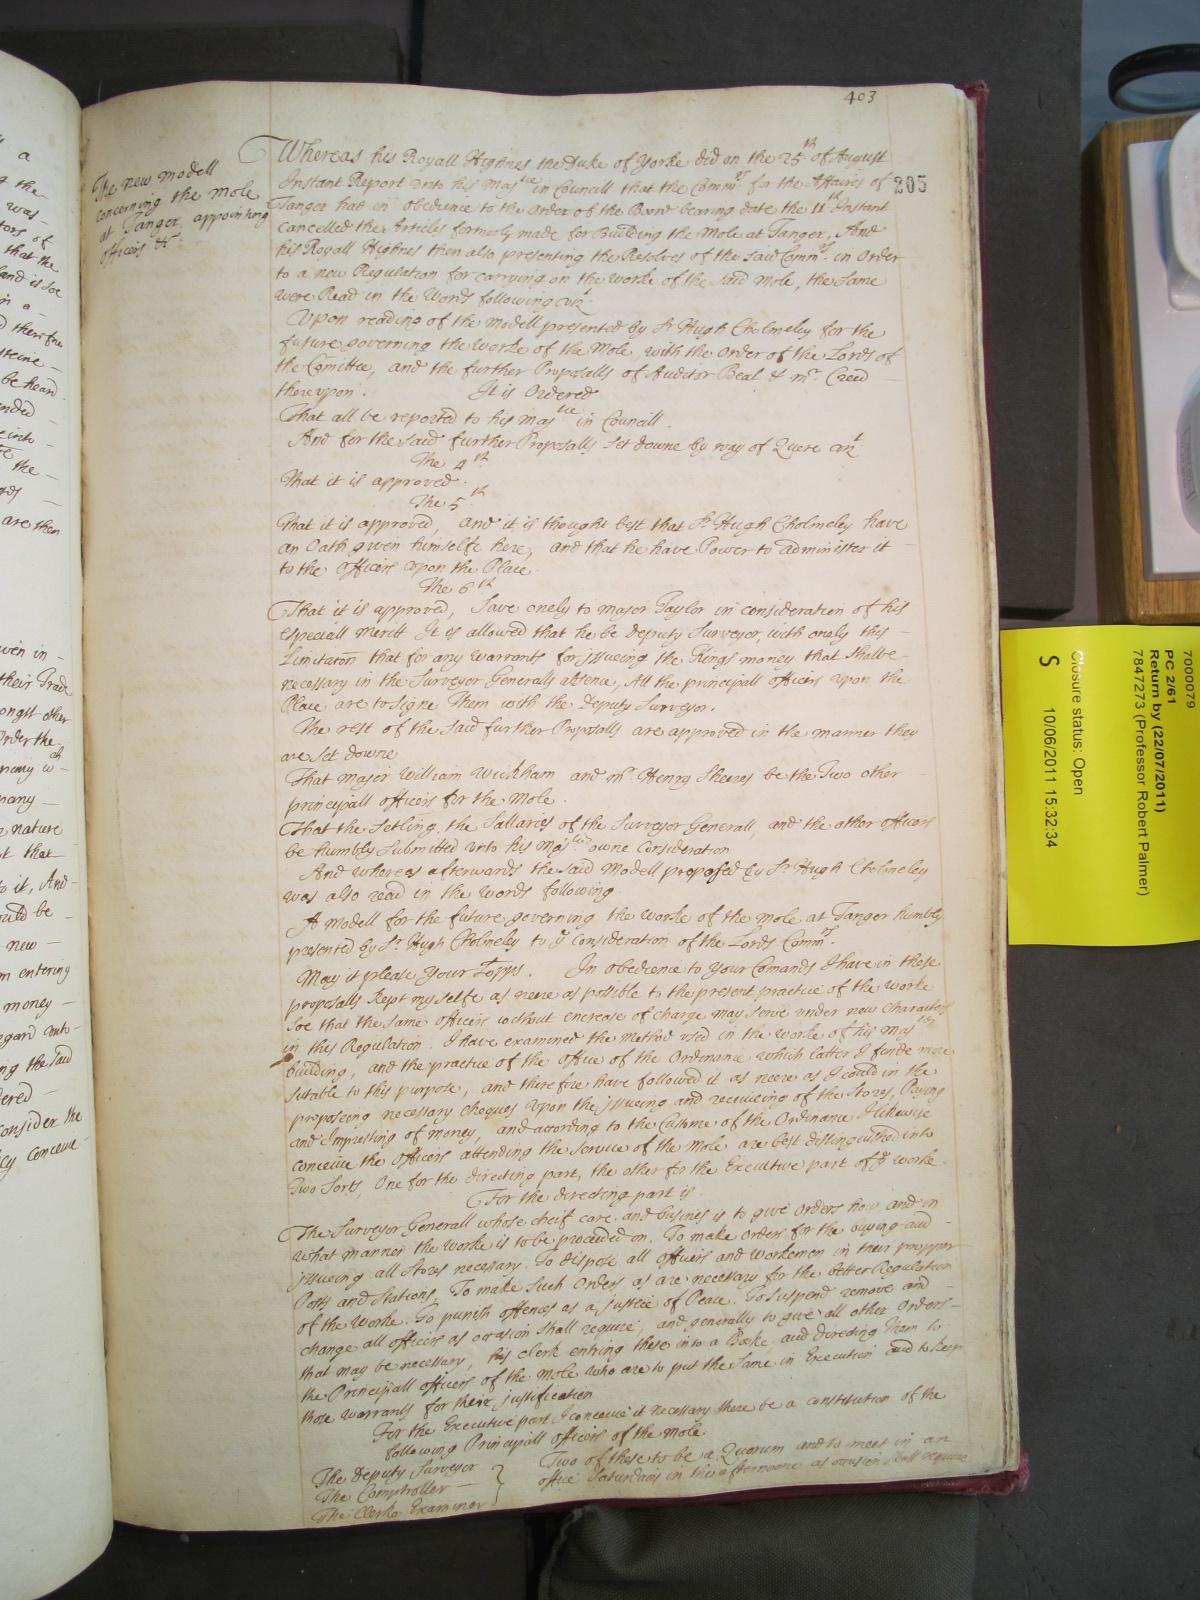 403
205
The new modell
concerning the mole
at Tanger, appointing
officers &c
Whereas his Royall Highnes the Duke of Yorke did on the 25th of August
Instant Report vnto his Matie in Councill that the Commrs for the Affaires of
Tanger had in obedience to the Order of the Board bearing date the 11th Instant
cancelled the Articles formerly made for Building the Mole at Tanger, And
his Royall Highnes then also presenting the Resolves of the said Commrs in order
to a new Regulation for carrying on the worke of the said Mole, the same
were Read in the Words following vizt.
Vpon reading of the modell presented by Sr Hugh Cholmeley for the
future governing the Worke of the Mole, with the order of the Lords of
the Comittee, and the further Proposalls of Auditor Beal & mr. Creed —
therevpon. It is Ordered
That all be reported to his Matie in Councill.
And for the said further Proposalls set downe by way of Quere vizt.
The 4th.
That it is approved.
The 5th
That it is approved, and it is thought best that Sr Hugh Cholmeley have
an Oath given himselfe here, and that he have Power to administer it —
to the officers vpon the Place.
The 6th
That it is approved, Save onely to major Taylor in consideration of his
especiall meritt It is allowed that he be Deputy Surveyor, with onely this —
Limitaton that for any warrants for issueing the Kings money that shalbe —
necessary in the Surveyor Generalls absence, All the principall officers vpon the
Place are to signe Them with the Deputy Surveyor.
The rest of the said further Proposalls are approved in the manner they
are set downe
That major William Wickham and mr. Henry Sheres be the Two other —
principall officers for the mole.
That the setling the Sallaries of the Surveyor Generall, and the other officers
be humbly Submitted vnto his Maties owne Consideration
And whereas afterwards the said Modell proposed by Sr Hugh Cholmeley
was also read in the words following.
A modell for the future governing the worke of the mole at Tanger humbly
presented by Sr. Hugh Cholmeley to ye consideration of the Lords Commrs.
May it please Your Lopps. In obedience to Your Comands I have in these
proposalls kept my selfe as neere as possible to the present practice of the worke
soe that the same officers without encrease of charge may serve under new Characters
in this Regulation. I have examined the Method vsed in the worke of his Maties
building, and the practice of the office of the Ordinance which latter I finde more
sutable to this purpose, and therefore have followed it as neere as I could in the
proposeing necessary cheques vpon the issueing and receiveing of the Stores, Paying
and Impresting of money, and according to the Custome of the Ordinance I likewise
conceive the officers attending the service of the Mole are best distinguished into
Two Sorts, One for the directing part, the other for the Executive part of ye worke.
For the directing part is
The Surveyor Generall whose cheif care and busines is to give Orders how and in
what manner the worke is to be proceeded on. To make orders for the buying and —
issueing all Stores necessary. To dispose all officers and workemen in their propper
Posts and Stations. To make Such Orders as are necessary for the better Regulation
of the Worke. To punish offences as a Justice of Peace. To suspend remove and —
change all officers as occasion shall require, and generally to give all other Orders —
that may be necessary, his clerk entring these into a Booke, and directing them to
the Principall officers of the mole who are to put the same in Execution and to keep
those warrants for their justification
For the Executive part I conceive it necessary there be a constitution of the
following Principall officers of the mole.
The Deputy Surveyor
The Comptroller —
The Clerke Examiner
Two of these to be a Quorum and to meet in an
office Saturdays in the afternoone as occasion shall require
7000079
PC 2/61
Return by (22/07/2011)
7847273 (Professor Robert Palmer)
Closure status: Open
S 10/06/2011 15:32:34